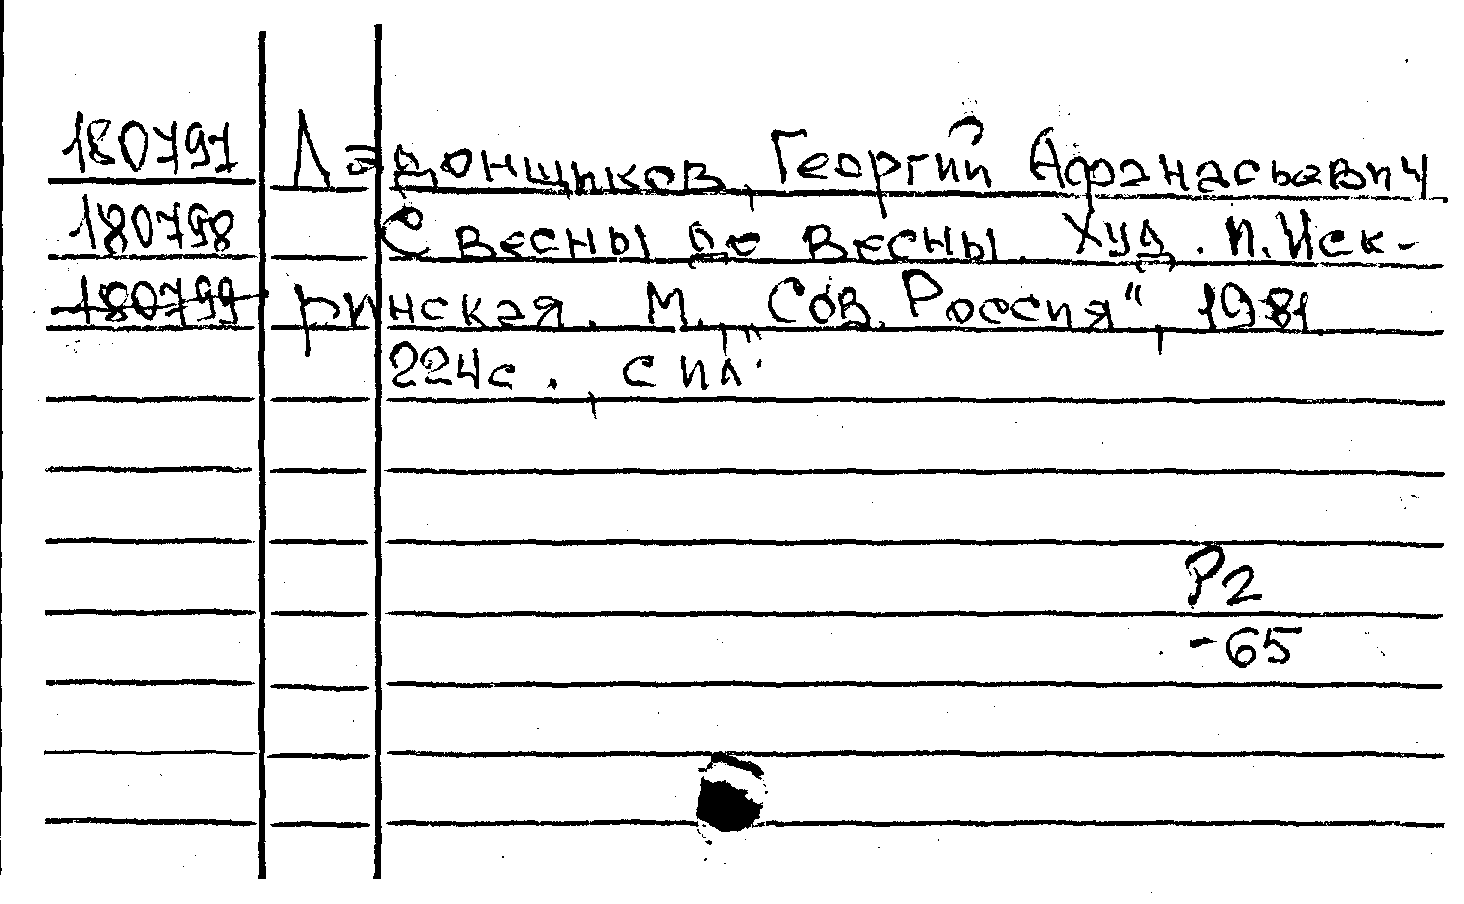 180797 Ладонщиков, Георгий Афанасьевич
180798 С весны до весны. Худ. И. Иск-
180799 ринская. М., „Сов. Россия“, 1981
224с., с ил.
Р2
-65